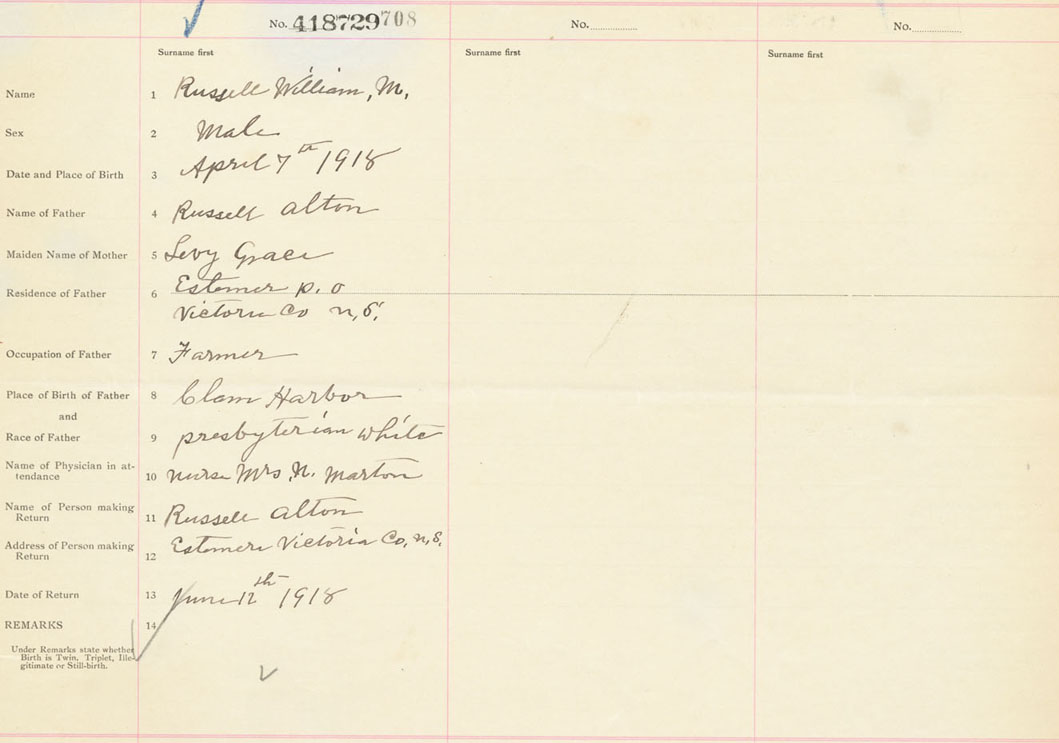 No. 418729 708
No.
No.
Surname first
Surname first
Surname first
Name 1 Russell William, M.
Sex 2 Male
Date and Place of Birth 3 April 7th 1918
Name of Father 4 Russell Alton
Maiden Name of Mother 5 Levy Grace
Residence of Father 6 Estmere p. o
Victoria Co n, S,
Occupation of Father 7 Farmer
Place of Birth of Father 8 Clam Harbor
and
Race of Father 9 presbyterian white
Name of Physician in at-
tendance 10 nurse Mrs, N. Marton
Name of Person making
Return 11 Russell Alton
Address of Person making
Return 12 Estmere Victoria Co, n, S,
Date of Return 13 June 12th 1918
REMARKS 14
Under Remarks state whether
Birth is Twin, Triplet, Ille-
gitimate or Still-birth.